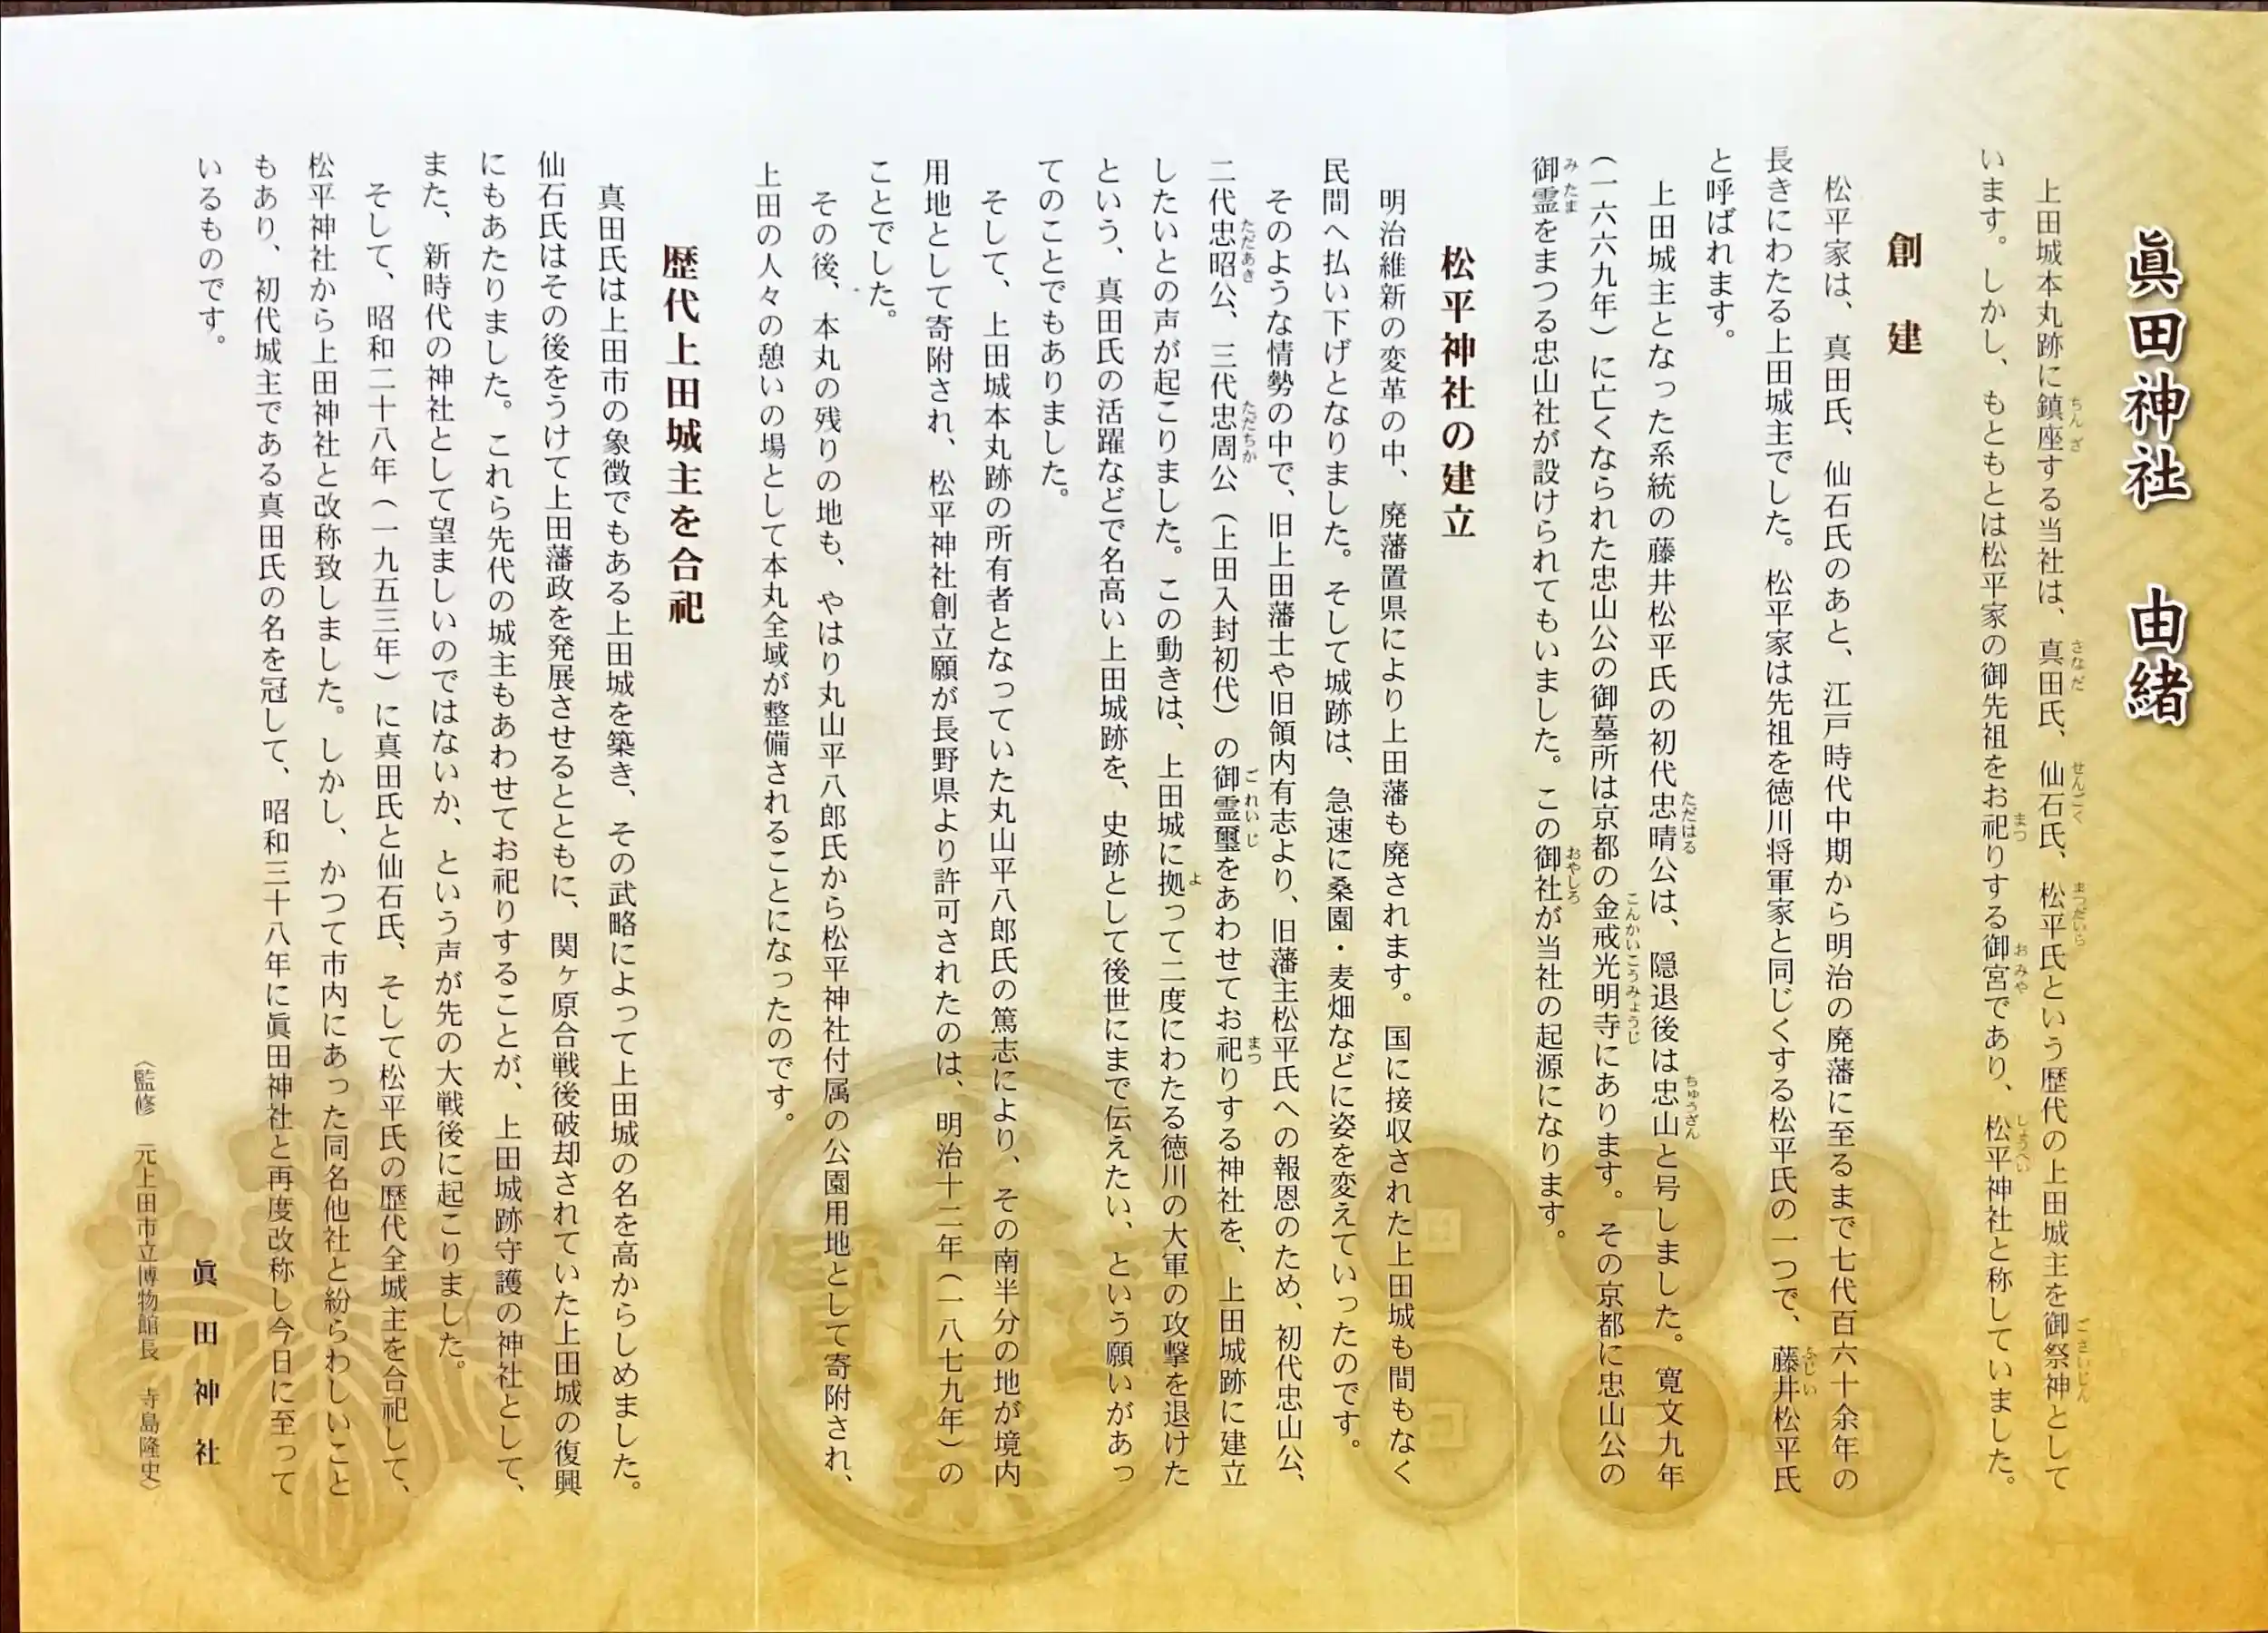 眞田神社　由緒
　上田城本丸跡に鎮座する当社は、真田氏、仙石氏、松平氏という歴代の上田城主を御祭神として
います。しかし、もともとは松平家の御先祖をお祀りする御宮であり、松平神社と称していました。
創　建
　松平家は、真田氏、仙石氏のあと、江戸時代中期から明治の廃藩に至るまで七代百六十余年の
長きにわたる上田城主でした。松平家は先祖を徳川将軍家と同じくする松平氏の一つで、藤井松平氏
と呼ばれます。
　上田城主となった系統の藤井松平氏の初代忠晴公は、隠退後は忠山と号しました。寛文九年
（一六六九年）に亡くなられた忠山公の御墓所は京都の金戒光明寺にあります。その京都に忠山公の
御霊をまつる忠山社が設けられてもいました。この御社が当社の起源になります。
松平神社の建立
　明治維新の変革の中、廃藩置県により上田藩も廃されます。国に接収された上田城も間もなく
民間へ払い下げとなりました。そして城跡は、急速に桑園・麦畑などに姿を変えていったのです。
　そのような情勢の中で、旧上田藩士や旧領内有志より、旧藩主松平氏への報恩のため、初代忠山公、
二代忠昭公、三代忠周公（上田入封初代）の御霊璽をあわせてお祀りする神社を、上田城跡に建立
したいとの声が起こりました。この動きは、上田城に拠って二度にわたる徳川の大軍の攻撃を退けた
という、真田氏の活躍などで名高い上田城跡を、史跡として後世にまで伝えたい、という願いがあっ
てのことでもありました。
　そして、上田城本丸跡の所有者となっていた丸山平八郎氏の篤志により、その南半分の地が境内
用地として寄附され、松平神社創立願が長野県より許可されたのは、明治十二年（一八七九年）の
ことでした。
　その後、本丸の残りの地も、やはり丸山平八郎氏から松平神社付属の公園用地として寄附され、
上田の人々の憩いの場として本丸全域が整備されることになったのです。
歴代上田城主を合祀
　真田氏は上田市の象徴でもある上田城を築き、その武略によって上田城の名を高からしめました。
仙石氏はその後をうけて上田藩政を発展させるとともに、関ヶ原合戦後破却されていた上田城の復興
にもあたりました。これら先代の城主もあわせてお祀りすることが、上田城跡守護の神社として、
また、新時代の神社として望ましいのではないか、という声が先の大戦後に起こりました。
　そして、昭和二十八年（一九五三年）に真田氏と仙石氏、そして松平氏の歴代全城主を合祀して、
松平神社から上田神社と改称致しました。しかし、かつて市内にあった同名他社と紛らわしいこと
もあり、初代城主である真田氏の名を冠して、昭和三十八年に眞田神社と再度改称し今日に至って
いるものです。
眞田神社
〈監修　元上田市立博物館長　寺島隆史〉